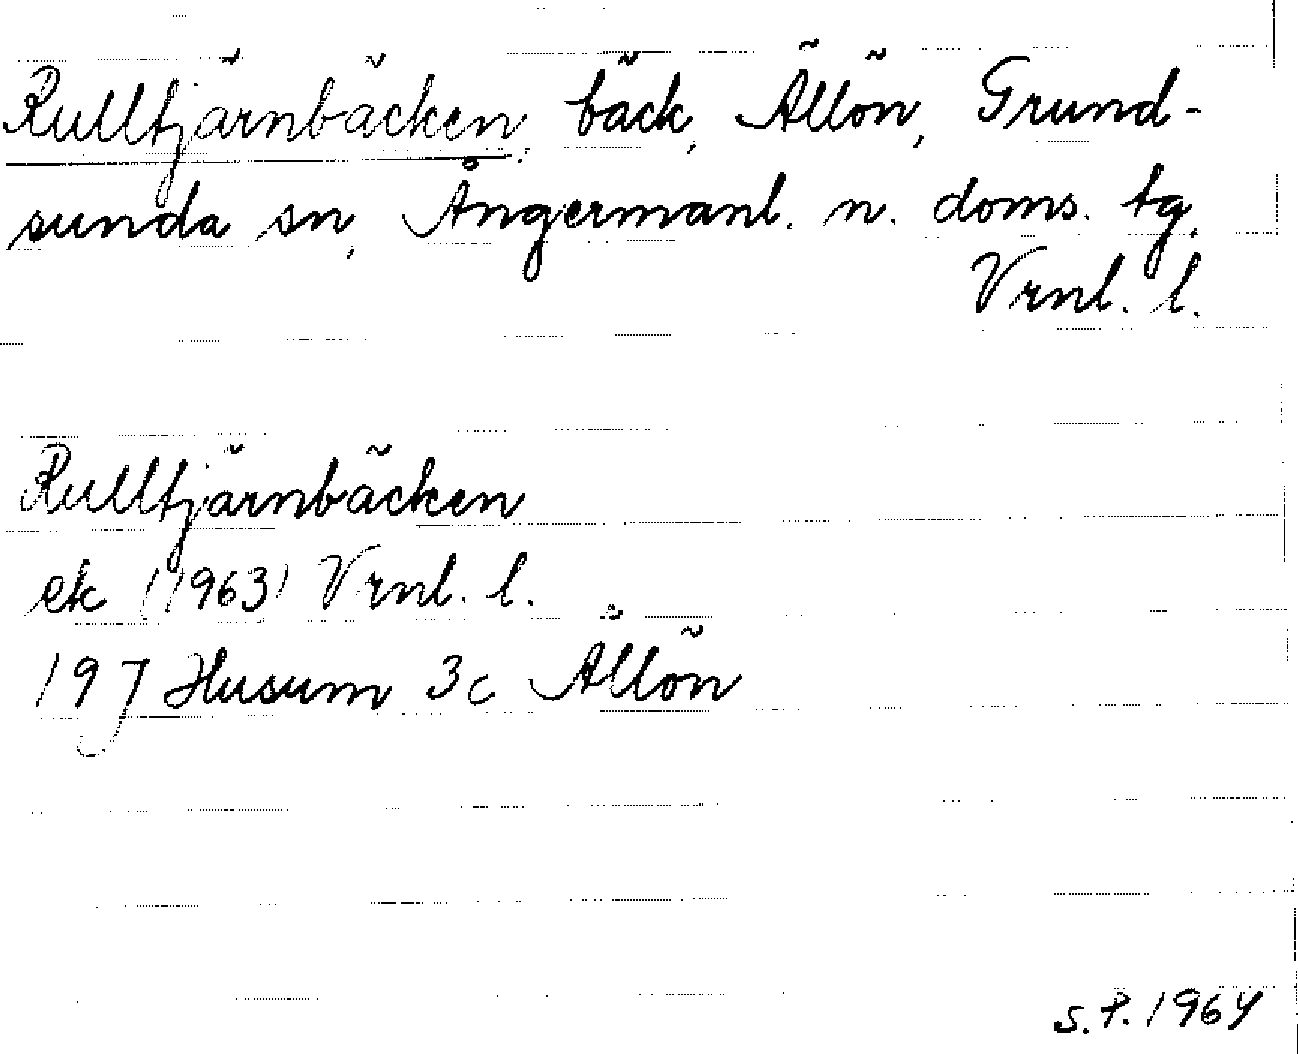 Rulltjärnbäcken, bäck, Ällön, Grund-
sunda sn, Ångermanl. n. doms. tg.
Vrnl. l.
Rulltjärnbäcken
ek (1963) Vrnl. l.
19 J Husum 3c Ällön
S.P. 1964